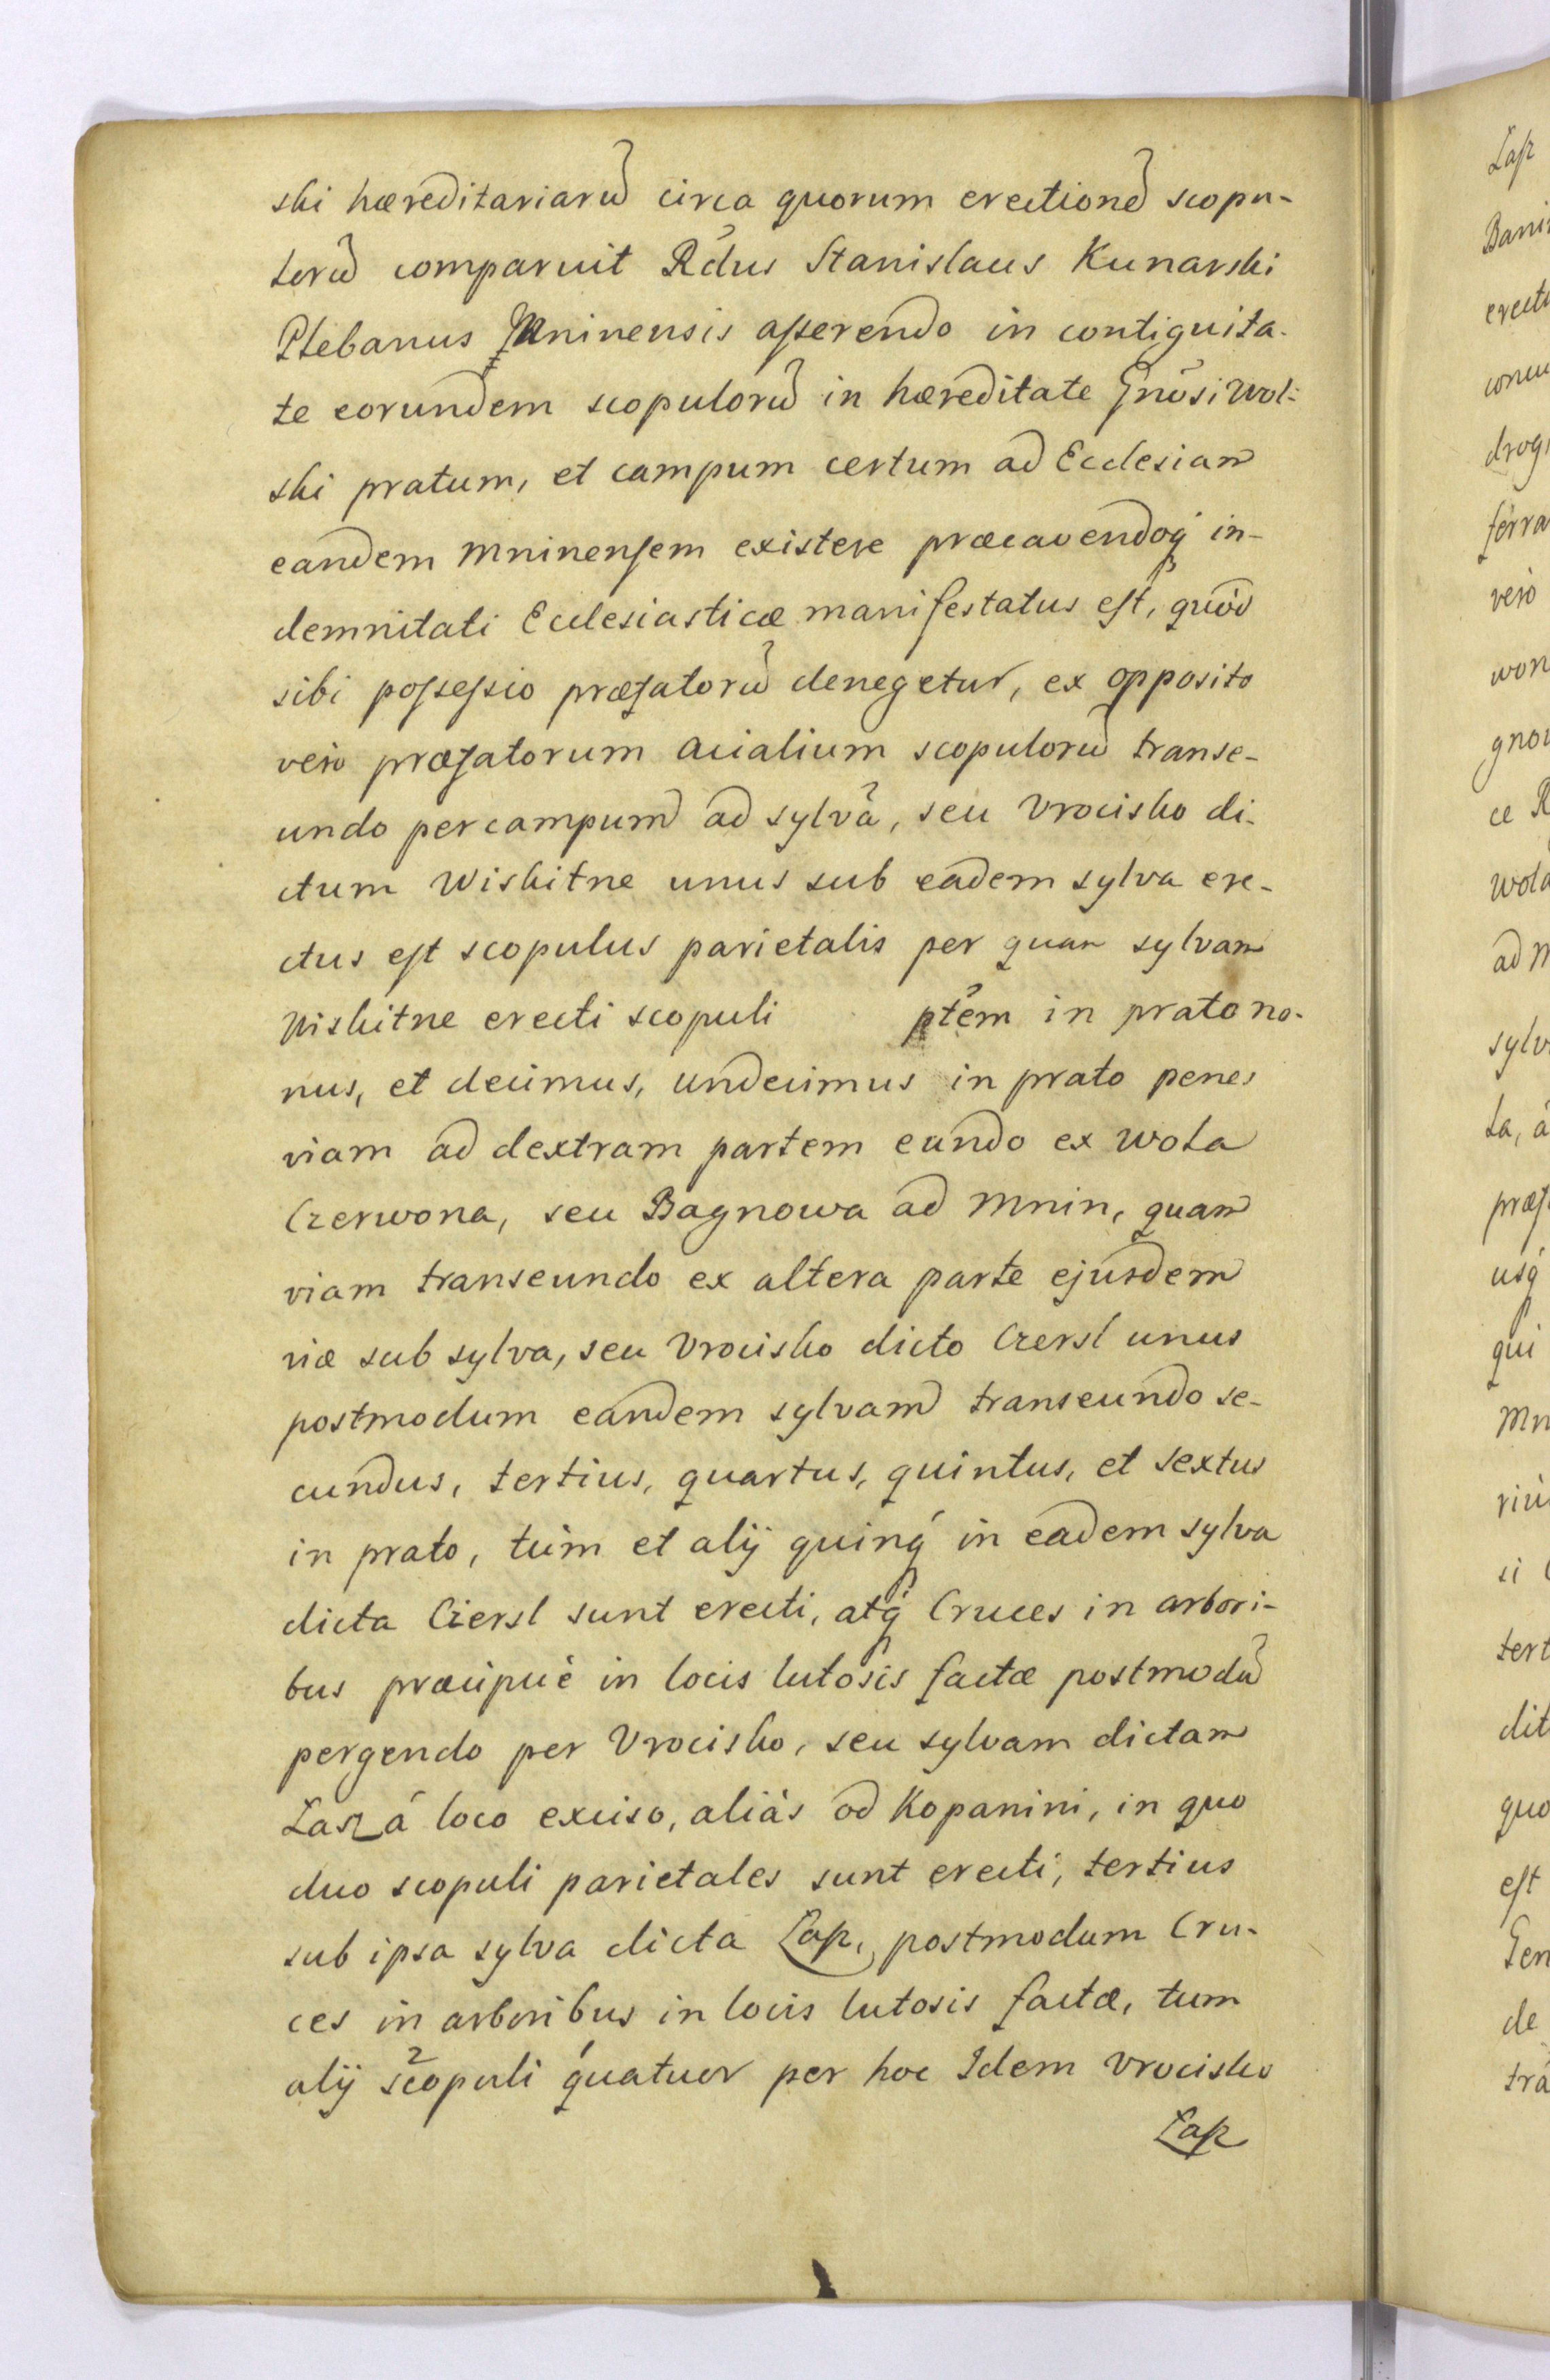 ski hæreditariarũ circa quorum erectionẽ scopu-
lorũ comparuit Rdus Stanislaus Kunarski
Plebanus Mninensis aſserendo in contiguita-
te eorundem scopulorũ in hæreditate Gnosi Wol-
ski pratum, et campum certum ad Ecclesiam
eandem Mninenſem existere præcavendoq́ in-
demnitati Ecclesiasticæ manifestatus eſt, quòd
sibi poſseſsio præfatorũ denegetur, ex opposito
vero præfatorum acialium scopulorũ transe-
undo per campum ad sylvã, seu Vrocisko di-
ctum Wiskitne unus sub eadem sylva ere-
ctus eſt scopulus parietalis per quam sylvam
Wiskitne erecti scopuli ptẽm in prato no-
nus, et decimus, undecimus in prato penes
viam ad dextram partem eundo ex Wola
Czerwona, seu Bagnowa ad Mnin, quam
viam transeundo ex altera parte ejusdem
viæ sub sylva, seu Vrocisko dicto Czersl unus
postmodum eandem sylvam transeundo se-
cundus, tertius, quartus, quintus, et sextus
in prato, tùm et alij quinq́ in eadem sylva
dicta Czersl sunt erecti, atq́ Cruces in arbori-
bus præcipuè in locis lutosis factæ postmodũ
pergendo per Vrocisko, seu sylvam dictam
Łasz á loco exciso, aliàs od Kopanini, in quo
duo scopuli parietales sunt erecti, tertius
sub ipsa sylva dicta Łaſz, postmodum Cru-
ces in arboribus in locis lutosis factæ, tum
alij scopuli quatuor per hoc Idem Vrocisko
Łaſz